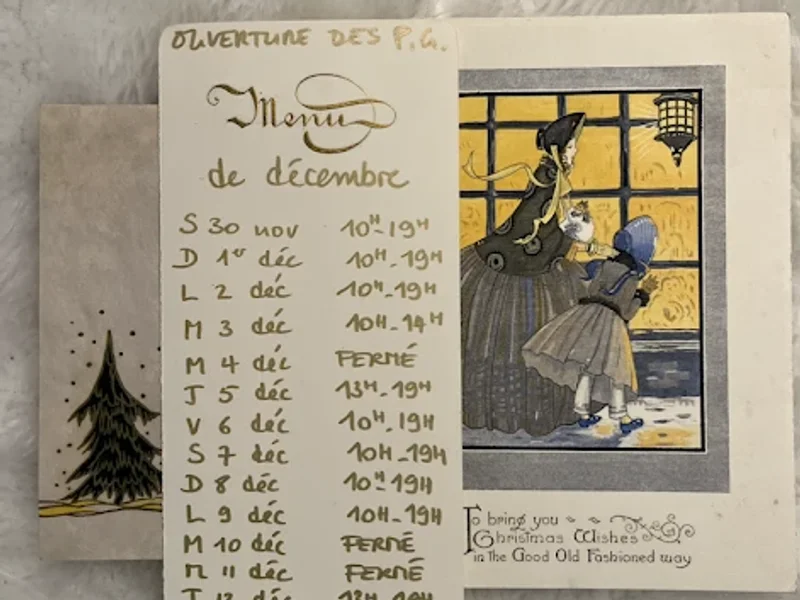 OUVERTURE DES P.G.
Menu
de décembre
S 30 nov 10H-19H
D 1er déc 10H-19H
L 2 déc 10H-19H
M 3 déc 10H-14H
M 4 déc FERMÉ
J 5 déc 13H-19H
V 6 déc 10H-19H
S 7 déc 10H-19H
D 8 déc 10H-19H
L 9 déc 10H-19H
M 10 déc FERMÉ
M 11 déc FERMÉ
To bring you
Christmas Wishes
in the Good Old Fashioned way